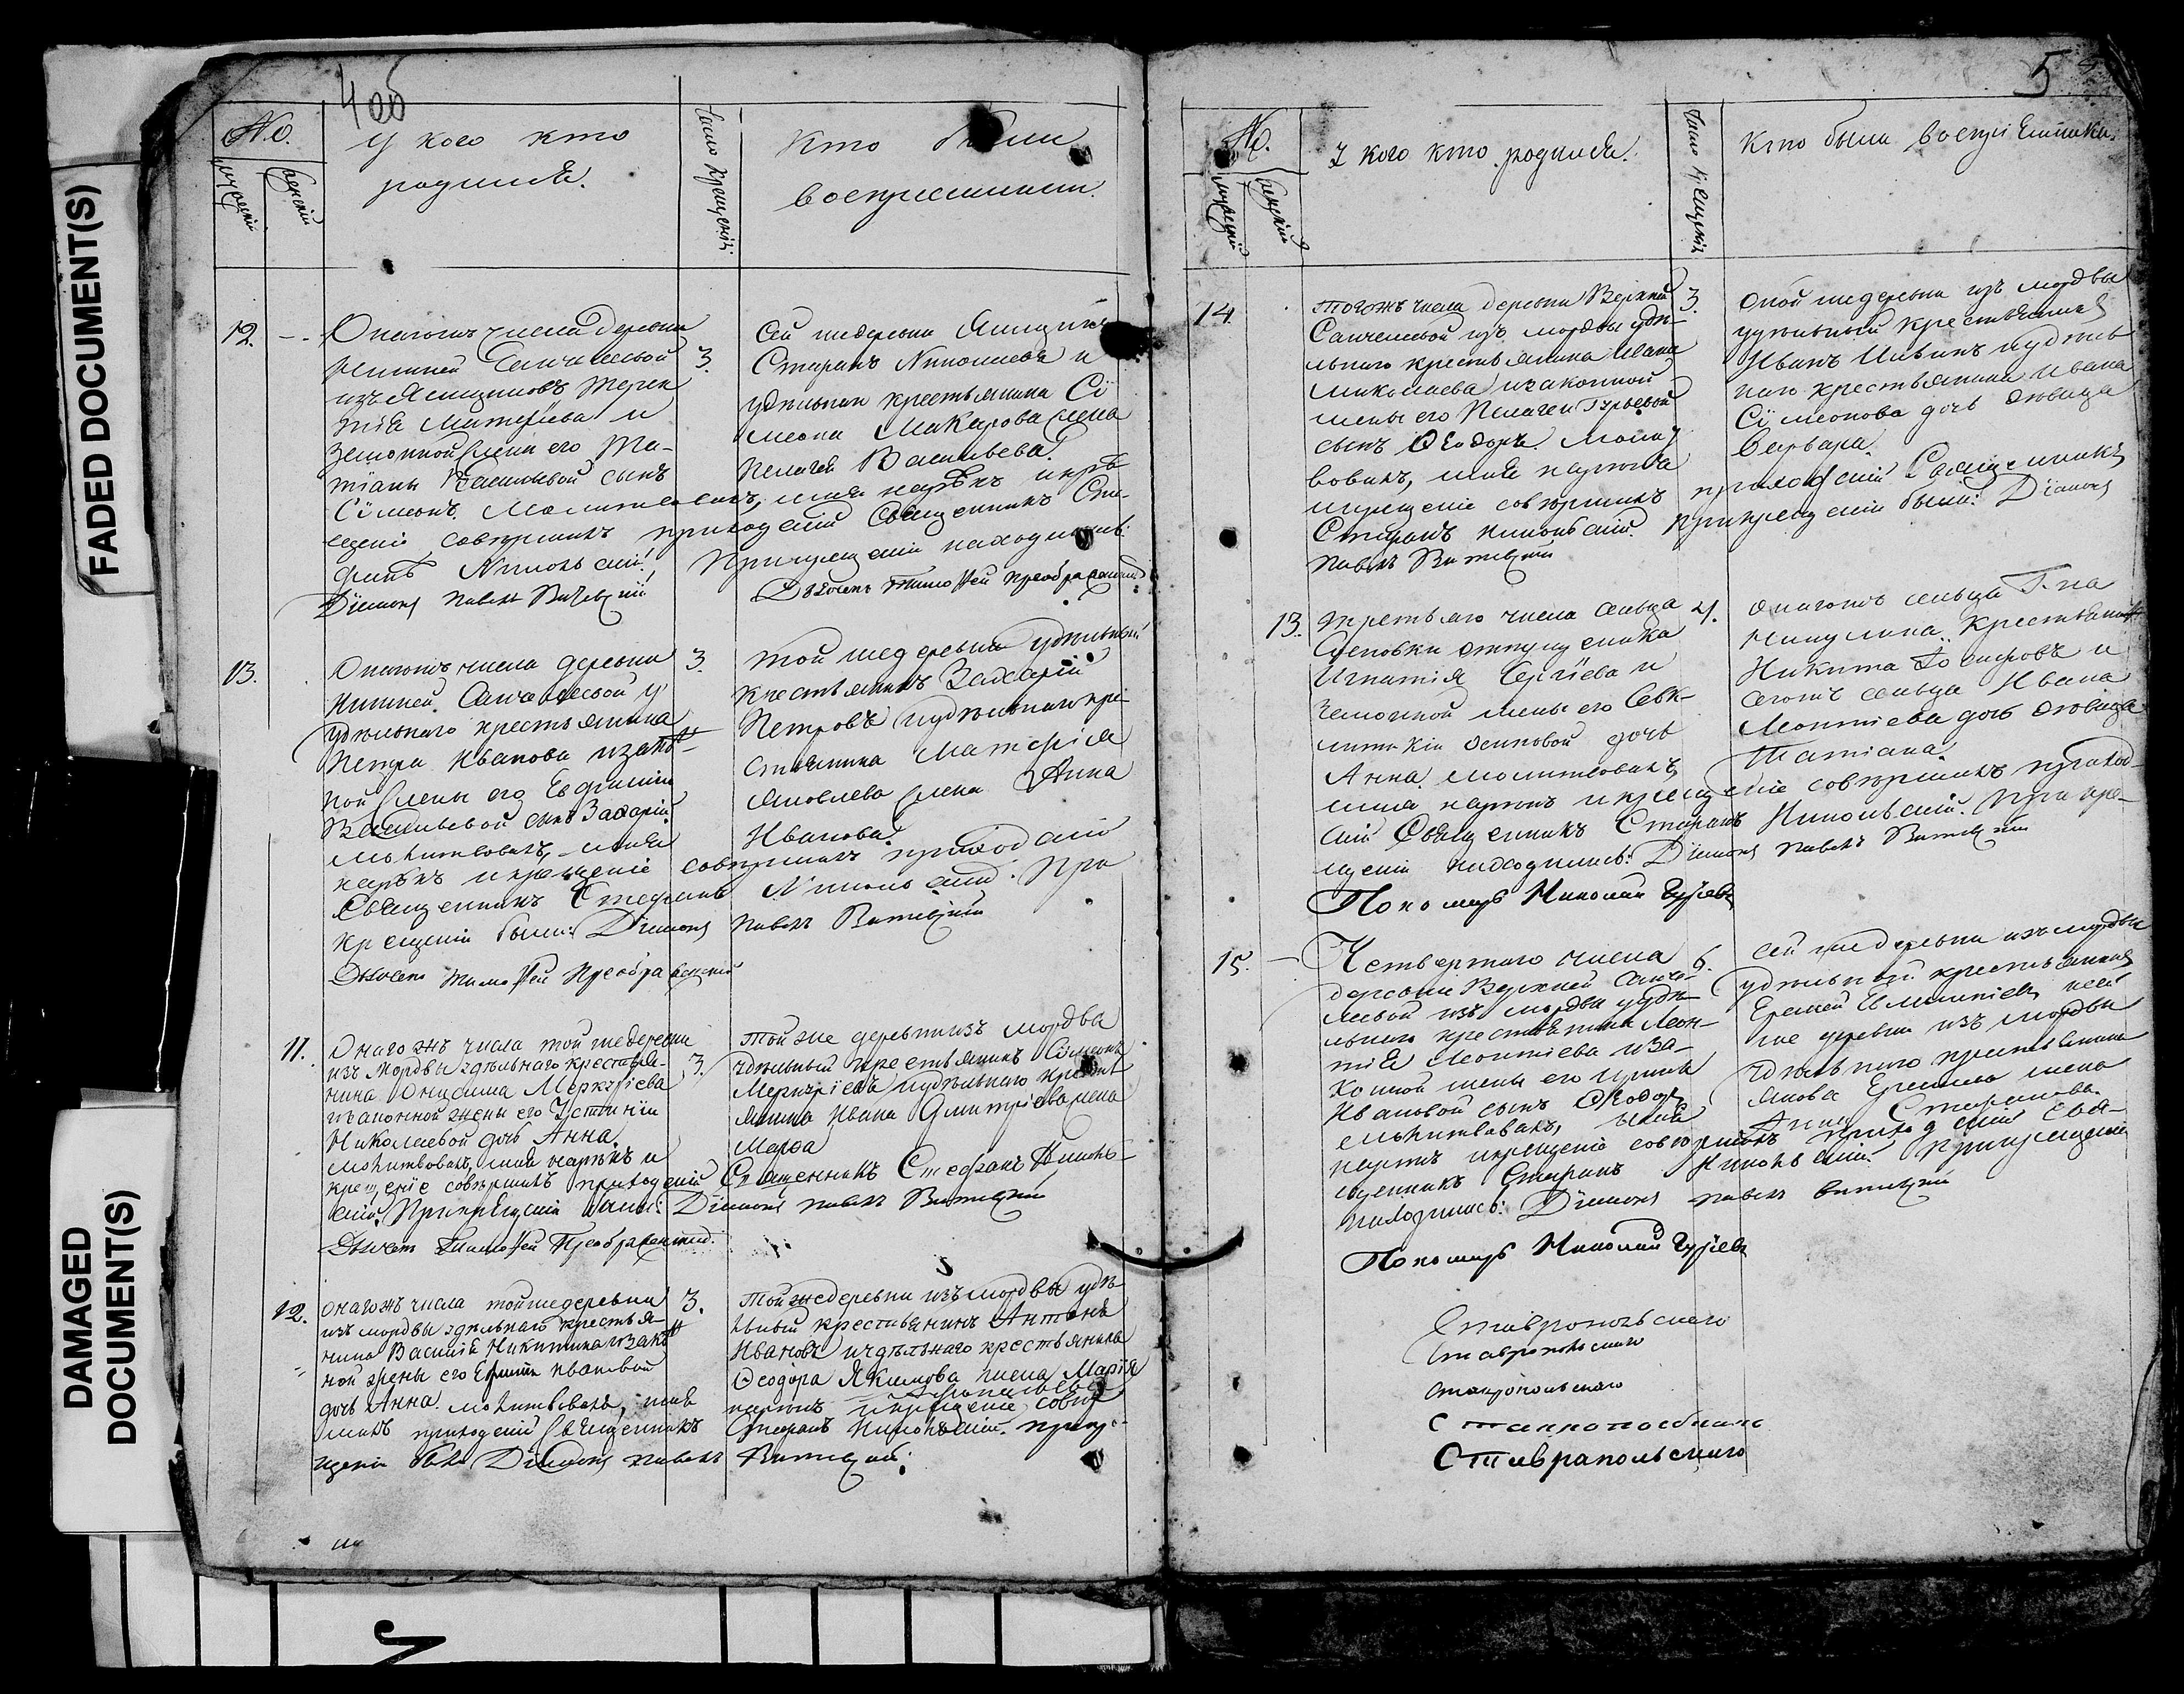 FADED DOCUMENT(S)
DAMAGED
DOCUMENT(S)
4об
№.
мужескій
женскій
У кого кто
родился.
Число крещенія
Кто были
воспріемники.
12.
Онагожъ числа деревни
Нижней Санчелеевой
изъ Ясащиковъ
Матѳѣева и
законной жены его Та-
тіаны Васильевой сынъ
Сѵмеонъ. Молитвовалъ, имя нарѣкъ и крѣ
щеніе совершилъ приходскій Священникъ Сте-
фанъ Никольскій. При крещеніи находились:
Діаконъ Павелъ Витевскій
Дьячекъ Тимоѳей Преображенскій
3.
Сей же деревни
Стефанъ Николаевъ и
удѣльнаго крестьянина Сѵ
меона Макарова жена
Пелагея Васильева.
13.
Онагожъ числа деревни
Нижней Санчелеевой у
удѣльнаго крестьянина
Петра Иванова и закон
ной жены его Евфиміи
Васильевой сынъ Захарій.
Молитвовалъ, имя
нарѣкъ и крещеніе совершилъ приходскій
Священникъ Стефанъ Никольскій. При
крещеніи были: Діаконъ Павелъ Витевскій
Дьячекъ Тимоѳей Преображенскій
3.
Той же деревни удѣльный
крестьянинъ Захарій
Петровъ и удѣльнаго кре-
стьянина Матѳѣя
Яковлева жена Анна
Иванова.
11.
Онагожъ числа той же деревни
изъ мордвы удѣльнаго крестья-
нина Онисима Меркурьева
и законной жены его Устиніи
Николаевой дочь Анна.
Молитвовалъ, имя нарѣкъ и
крещеніе совершилъ приходскій Священникъ Стефанъ Николь-
скій. При крещеніи были: Діаконъ Павелъ Витевскій
Дьячекъ Тимоѳей Преображенскій.
3.
Той же деревни изъ мордвы
удѣльный крестьянинъ Сѵмеонъ
Меркурьевъ и удѣльнаго кресть
янина Ивана Дмитріева жена
Марѳа
12.
Онагожъ числа той же деревни
изъ мордвы удѣльнаго крестья-
нина Василія Никитина и закон
ной жены его Ивановой
дочь Анна. Молитвовалъ, имя
нарѣкъ и крещеніе совер
шилъ приходскій Священникъ Стефанъ Никольскій. При кре-
щеніи былъ Діаконъ Павелъ Витевскій.
3.
Той же деревни изъ мордвы удѣ
льный крестьянинъ Антонъ
Ивановъ и удѣльнаго крестьянина
Ѳеодора Якимова жена Марія
5
№.
мужескій
женскій
У кого кто родился.
Число крещенія
Кто были воспріемники.
14.
Тогожъ числа деревни Верхней
Санчелеевой изъ мордвы удѣ-
льнаго крестьянина Ивана
Николаева и законной
жены его Пелагеи Гурьевой
сынъ Ѳеодоръ. Молит
вовалъ, имя нарѣкъ и
крещеніе совершилъ приходскій Священникъ
Стефанъ Никольскій. При крещеніи были: Діаконъ
Павелъ Витевскій
3.
Оной же деревни изъ мордвы
удѣльный крестьянинъ
Иванъ и удѣль
наго крестьянина Ивана
Сѵмеонова дочь дѣвица
Варвара.
13.
Третьяго числа сельца
отпущеника
Игнатія Сергѣева и
законной жены его
Осиповой дочь
Анна. Молитвовалъ,
имя нарѣкъ и крещеніе совершилъ приход-
скій Священникъ Стефанъ Никольскій. При кре-
щеніи находились: Діаконъ Павелъ Витевскій
Пономарь Николай Гурьевъ
4.
Онагожъ сельца Г-на
крестьянинъ
Никита и
сегожъ сельца Ивана
Леонтіева дочь дѣвица
Татіана.
15.
Четвертаго числа
деревни Верхней Санче-
леевой изъ мордвы удѣ-
льнаго крестьянина Леон-
тія Леонтіева и за-
конной жены его Ирины
Ивановой сынъ Ѳеодоръ
Молитвовалъ, имя
нарѣкъ и крещеніе совершилъ приходскій Свя-
щенникъ Стефанъ Никольскій. При крещеніи
находились: Діаконъ Павелъ Витевскій
Пономарь Николай Гурьевъ
6.
Сей же деревни изъ мордвы
удѣльный крестьянинъ
Еремей и сей
же деревни изъ мордвы
удѣльнаго крестьянина
Якова жена
Анна Стефанова.
Ставропольскаго
Ставропольскаго
Ставропольскаго
Ставрапольскаго